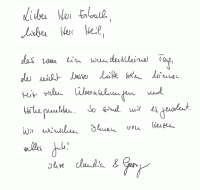 Lieber Herr Erbach,
lieber Herr Heil,
das war ein wunderschöner Tag,
der nicht besser hätte sein können.
Mit vielen Überraschungen und
Höhepunkten. So sind wir es gewohnt.
Wir wünschen Ihnen von Herzen
alles Gute!
Ihre Claudia & Georg